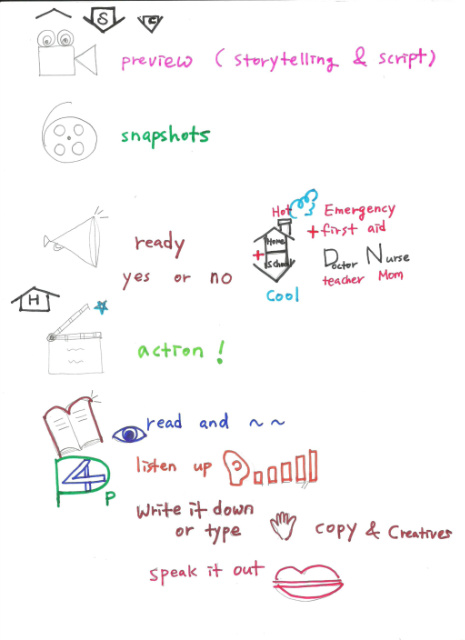 S C
preview (storytelling & script)
snapshots
Hot Emergency
+ first aid
ready
Home
+
School
Doctor Nurse
teacher Mom
yes or no
Cool
H
action!
read and ~ ~
4
P
listen up
write it down
or type
copy & Creatives
speak it out